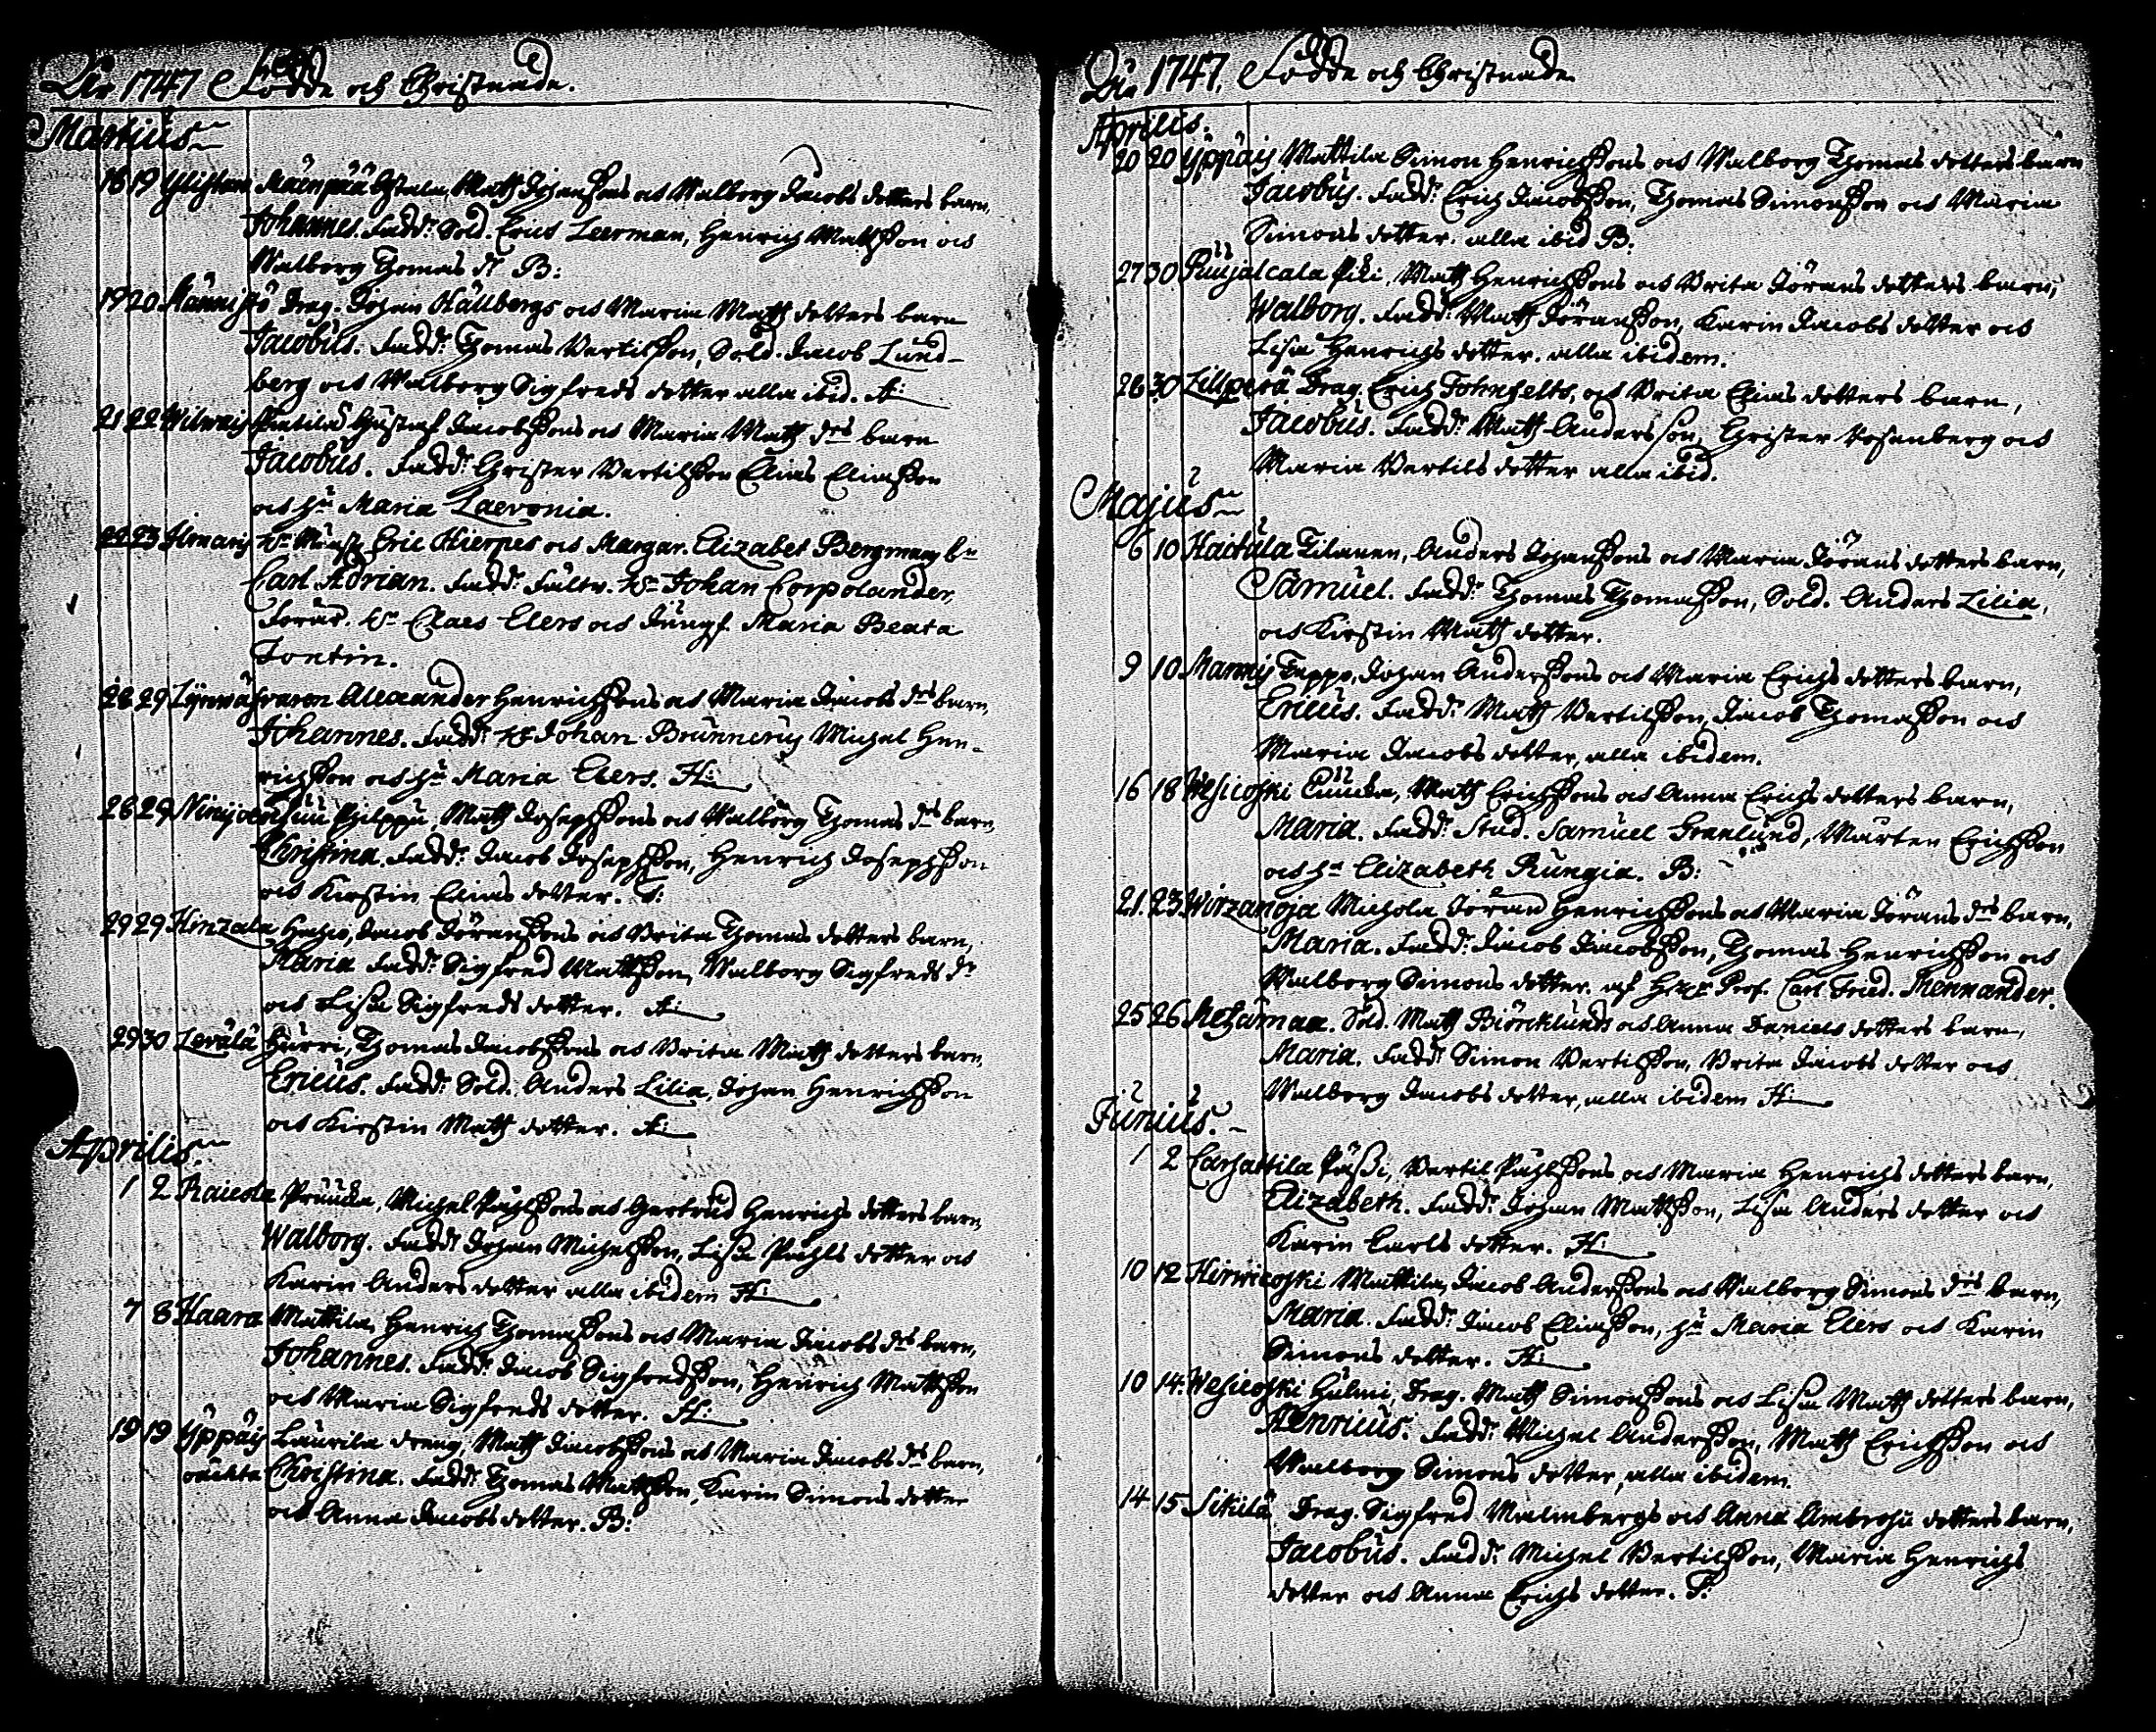 Åhr 1747 Födde och Christnade.
Martius
18 19 Ylistaro Mäenpää Matth Johanssons och Walborg Jacobs dotters barn,
Johannes. Fadd: Sold. Erics Leerman, Henrich Mattsson och
Walborg Thomas dr B:
19 20 Drag. Johan Hällbergs och Maria Matth dotters barn
Jacobus. Fadd: Thomas Bertilsson, Sold. Jacob Lund-
berg och Walborg Sigfreds dotter alla ibid.
21 22 Gustaf Jacobssons och Maria Matth drs barn
Jacobus. Fadd: Christer Bertilsson Elias Eliasson
och hu Maria Laevonia.
22 23 Ilmaris Hr Eric Hierpes och Margar. Elizabet Bergman bn
Carl Adrian. Fadd: Fältw. Hr Johan Corpolander,
Förar. Hr Claes Elers och Jungf. Maria Beata
Tontin.
28 29 Alexander Henrichssons och Maria Jacobs drs barn,
Johannes. Fadd: Hr Johan Brunnerus Michel Hen-
richsson och hu Maria Elers. H:
28 29 Philppu, Matth Josephssons och Walborg Thomas drs barn,
Christina. Fadd: Jacob Josephsson, Henrich Josephsson
och Kirstin Elias dotter.
29 29 Hinzala Jacob Göranssons och Brita Thomas dotters barn,
Maria Fadd: Sigfred Mattsson, Walborg Sigfreds dr
och Lisa Sigfreds dotter.
29 30 Levälä Thomas Jacobssons och Brita Matth dotters barn,
Ericus. Fadd: Sold. Anders Lilia, Johan Henrichsson
och Kirstin Matth dotter.
Aprilis
1 2 Raicola Pruucka, Michel Påhlssons och Gertrud Henrichs dotters barn,
Walborg. Fadd: Johan Michelsson, Lisa Påhls dotter och
Karin Anders dotter alla ibidem H:
7 8 Haara Mattila, Henrich Thomassons och Maria Jacobs drs barn,
Johannes. Fadd: Jacob Sigfredsson, Henrich Mattsson
och Maria Sigfreds dotter. H:
19 19 Yppäis Laurila dreng, Matth Jacobssons och Maria Jacobs drs barn,
oächta Christina. Fadd: Thomas Mattsson, Karin Simons dotter
och Anna Jacobs dotter. B:
Åhr 1747. Födde och Christnade
Aprilis:
20 20 Yppäis Mattila Simon Henrichssons och Walborg Thomas dotters barn
Jacobus. Fadd: Erich Jacobsson, Thomas Simonsson och Maria
Simons dotter. alla ibid B.
27 30 Puujalcala Piki, Matth Henrichssons och Brita Görans dotters barn,
Walborg. Fadd: Matth Göransson, Karin Jacobs dotter och
Lisa Henrichs dotter. alla ibidem.
28 30 Zillperä Drag. Erich Fohnfelts, och Brita Elias dotters barn,
Jacobus. Fadd: Matth Andersson, Christer Rosenberg och
Maria Bertils dotter alla ibid.
Majus
6 10 Haitula Tilanen, Anders Johanssons och Maria Görans dotters barn,
Samuel. Fadd: Thomas Thomasson, Sold. Anders Lilia,
och Kirstin Matth dotter.
9 10 Mannis Teppo, Johan Anderssons och Maria Erichs dotters barn,
Ericus. Fadd: Matth Bertilsson, Jacob Thomasson och
Maria Jacobs dotter, alla ibidem.
16 18 Wesicoski Cuucka, Matth Erichssons och Anna Erichs dotters barn,
Maria. Fadd: Stud. Samuel Granlund, Mårten Erichsson
och hu Elizabeth Rungia. B:
21. 23. Wirzanoja Michola Göran Henrichssons och Maria Görans drs barn,
Maria. Fadd: Jacob Jacobsson, Thomas Henrichsson och
Walborg Simons dotter. af Herr Prof. Carl Fried. Mennander.
25 26 Metzämaa. Sold. Matth Biörcklunds och Anna Daniels dotters barn,
Maria. Fadd: Simon Bertilsson, Brita Jacobs dotter och
Walborg Jacobs dotter, alla ibidem H:
Junius.
1 2 Carhattila Pässi, Bertil Påhlssons och Maria Henrichs dotters barn,
Elizabeth. Fadd: Johan Mattsson, Lisa Anders dotter och
Karin Carls dotter. H:
10 12 Hirwicoski Mattila, Jacob Anderssons och Walborg Simons drs barn,
Maria. Fadd: Jacob Eliasson, hu Maria Elers och Karin
Simons dotter. H:
10 14. Wesicoski Hulmi, Drag. Matth Simonssons och Lisa Matth dotters barn,
Henricus. Fadd: Michel Andersson, Matth Erichsson och
Walborg Simons dotter, alla ibidem.
14 15 Sikilä Drag. Sigfred Malmbergs och Anna Ambrosii dotters barn,
Jacobus. Fadd: Michel Bertilsson, Maria Henrichs
dotter och Anna Erichs dotter.